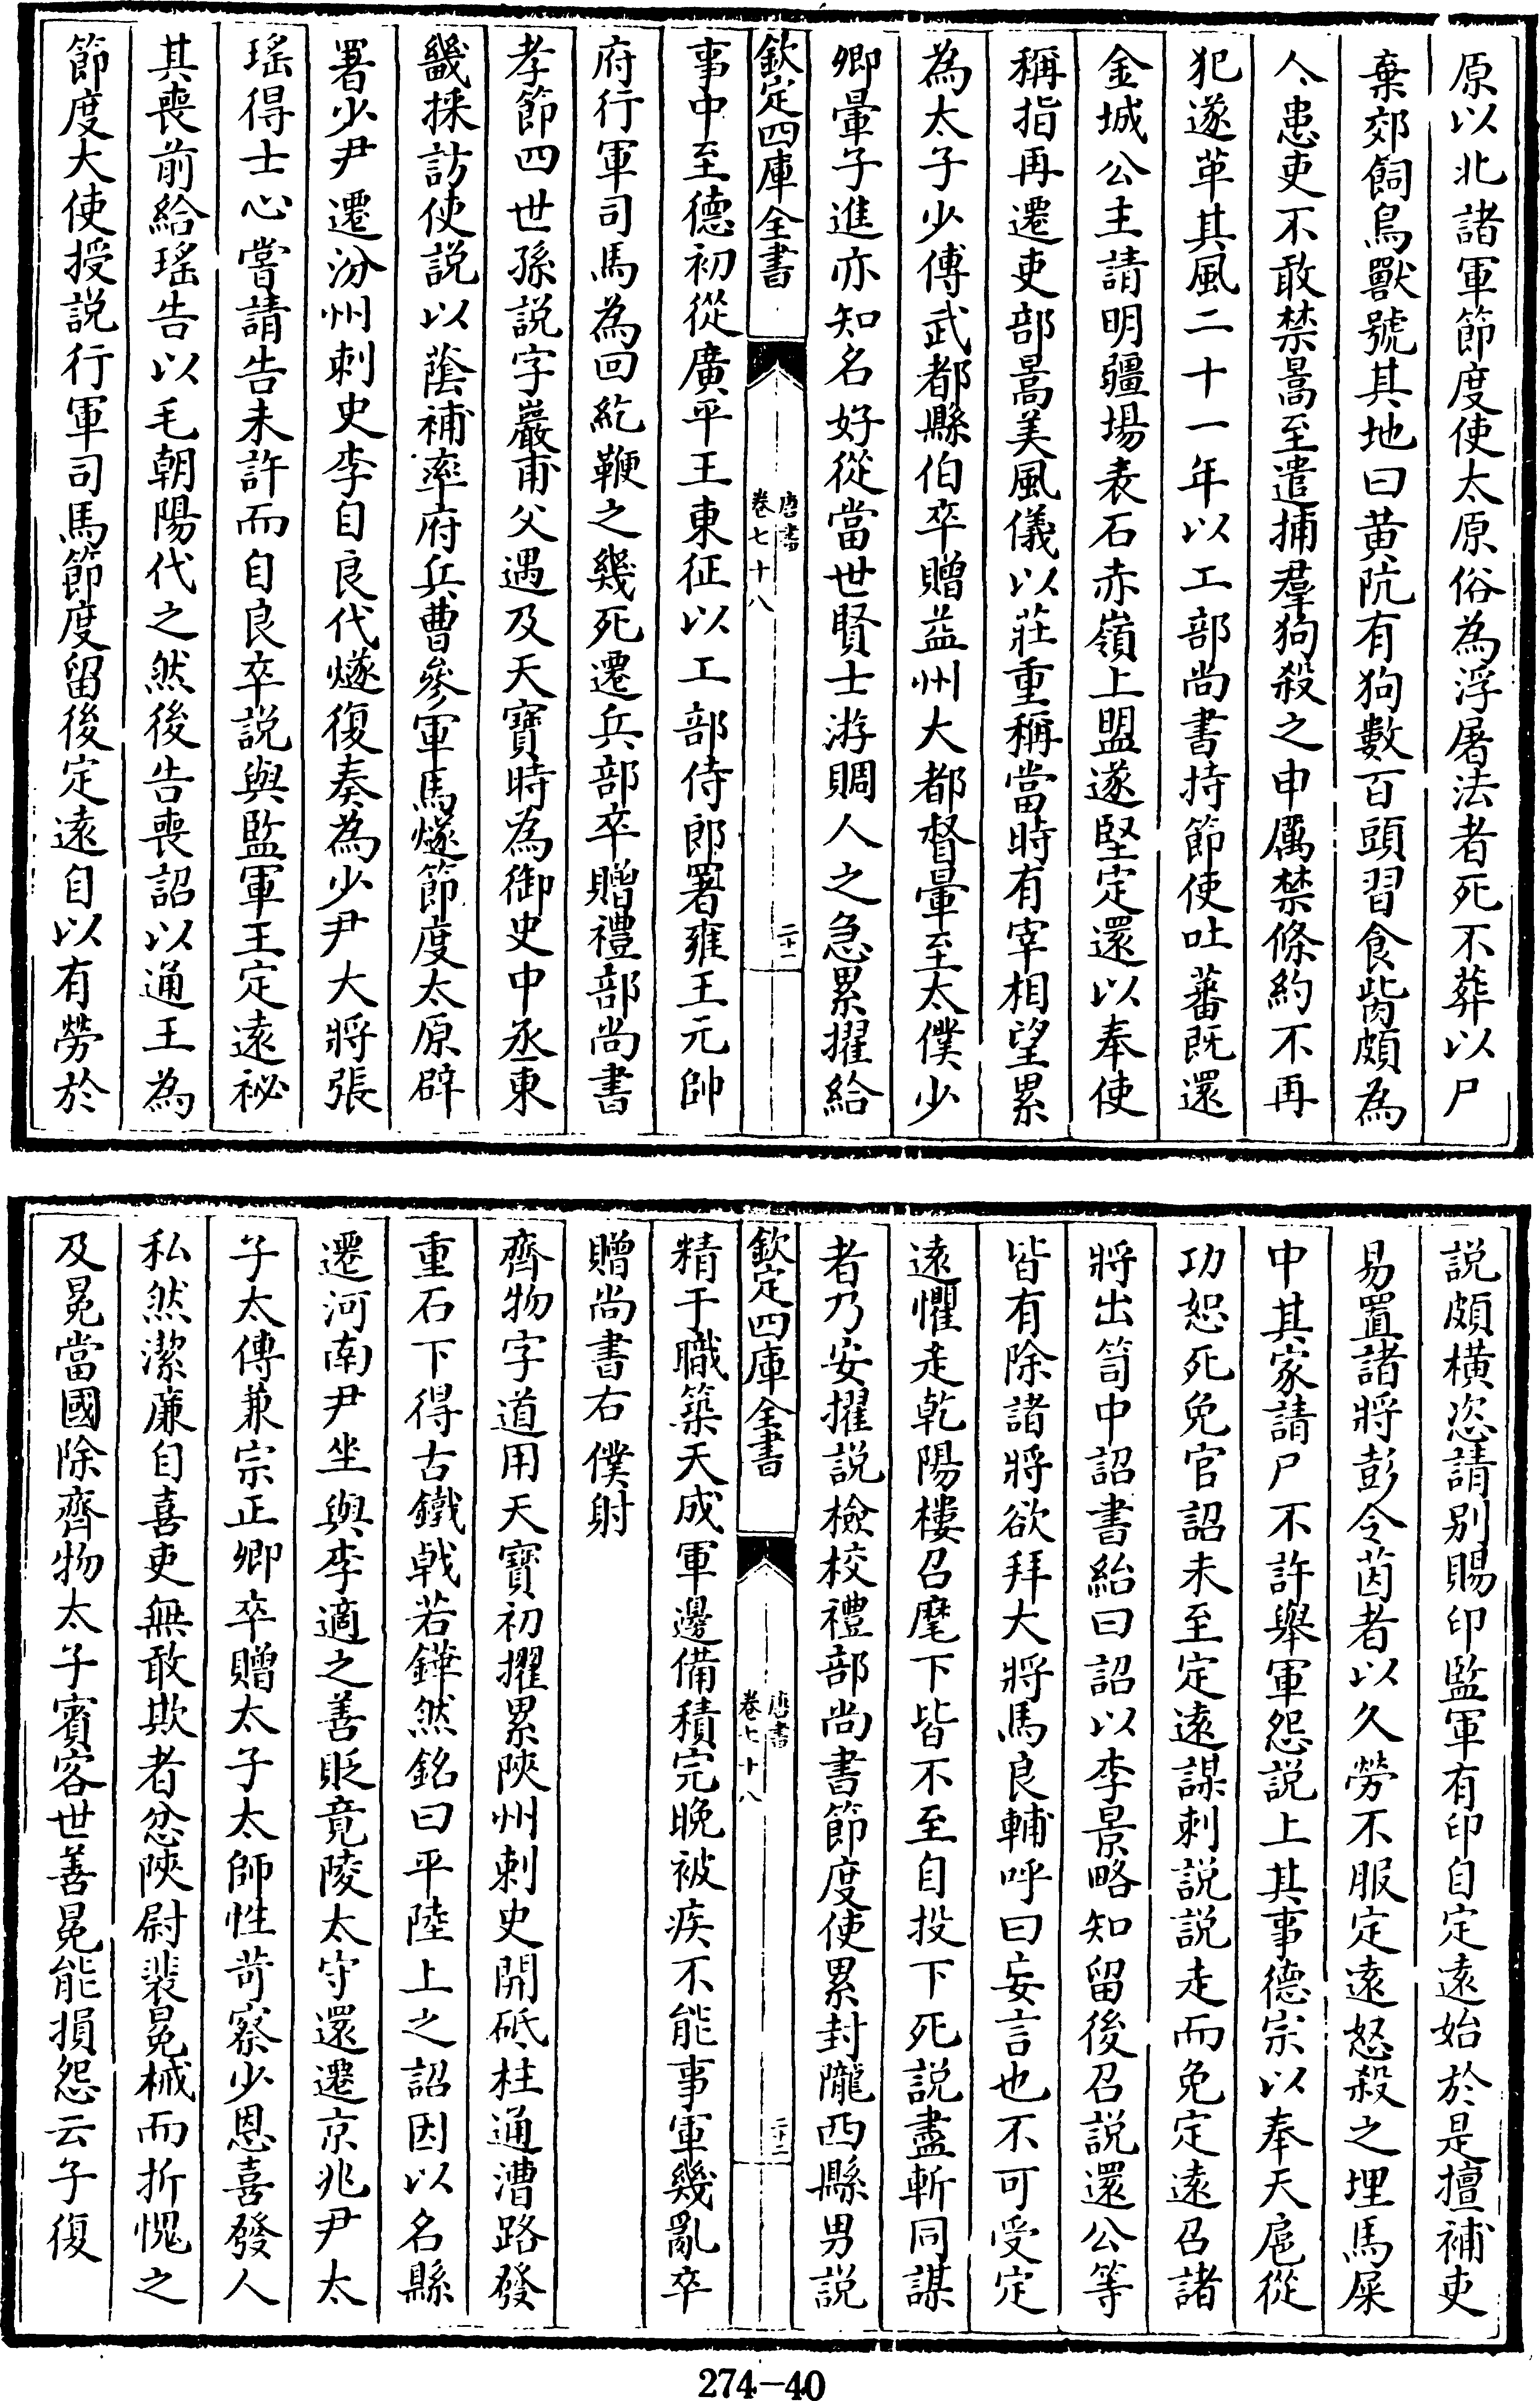 原以北諸軍節度使太原俗為浮屠法者死不葬以尸
棄郊飼鳥獸號其地曰黃阬有狗數百頭習食胔頗為
人患吏不敢禁暠至遣捕羣狗殺之申厲禁條約不再
犯遂革其風二十一年以工部尚書持節使吐蕃既還
金城公主請明疆場表石赤嶺上盟遂堅定還以奉使
稱指再遷吏部暠美風儀以莊重稱當時有宰相望累
為太子少傅武都縣伯卒贈益州大都督暈至太僕少
卿暈子進亦知名好從當世賢士游賙人之急累擢給
欽定四庫全書
唐書
卷七十八
二十一
事中至德初從廣平王東征以工部侍郎署雍王元帥
府行軍司馬為回紇鞭之幾死遷兵部卒贈禮部尚書
孝節四世孫説字巖甫父遇及天寶時為御史中丞東
畿採訪使説以蔭補率府兵曹參軍馬燧節度太原辟
署少尹遷汾州刺史李自良代燧復奏為少尹大將張
瑤得士心嘗請告未許而自良卒説與監軍王定遠祕
其喪前給瑤告以毛朝陽代之然後告喪詔以通王為
節度大使授説行軍司馬節度留後定遠自以有勞於
説頗橫恣請別賜印監軍有印自定遠始於是擅補吏
易置諸將彭令茵者以久勞不服定遠怒殺之埋馬屎
中其家請尸不許舉軍怨説上其事德宗以奉天扈從
功恕死免官詔未至定遠謀刺説説走而免定遠召諸
將出笥中詔書紿曰詔以李景略知留後召説還公等
皆有除諸將欲拜大將馬良輔呼曰妄言也不可受定
遠懼走乾陽樓召麾下皆不至自投下死説盡斬同謀
者乃安擢説檢校禮部尚書節度使累封隴西縣男説
欽定四庫全書
唐書
卷七十八
二十二
精于職築天成軍邊備積完晚被疾不能事軍幾亂卒
贈尚書右僕射
齊物字道用天寶初擢累陝州刺史開砥柱通漕路發
重石下得古鐵戟若鏵然銘曰平陸上之詔因以名縣
遷河南尹坐與李適之善貶竟陵太守還遷京兆尹太
子太傅兼宗正卿卒贈太子太師性苛察少恩喜發人
私然潔廉自喜吏無敢欺者忿陝尉裴冕械而折愧之
及冕當國除齊物太子賓客世善冕能損怨云子復
274-40